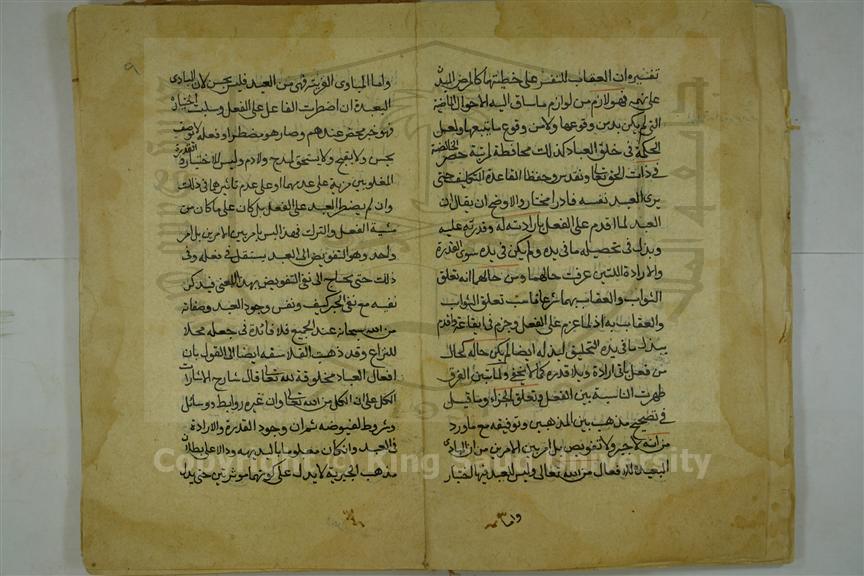 تفسيره ان العقاب للنفس على خطيئتها كالمرض للبدن
على نهمه فهو لازم من لوازم ما ساق اليه الاحوال الماضية
التي لم يكن بد من وقوعها ولا من وقوع ما يتبعها ولعل
الحكمة في خلق العباد كذلك محافظة لمرتبة حصر الخالقية
في ذات الحق تعالى وتقدس وحفظا لقاعدة التكليف حتى
يرى العبد نفسه قادرا مختارا والاوضح ان يقال ان
العبد لما اقدم على الفعل بارادته له وقدرته عليه
وبذل في تحصيله ما في يده ولم يكن في يده سوى القدرة
والارادة اللتين عرفت حالهما ومن حالهما انه تعلق
الثواب والعقاب بهما شرعا فناسب تعلق الثواب
والعقاب به اذ لما عزم على الفعل وجزم في ايقاعه واقدم
ببذل ما في يده التحقيق لبذله ايضا لم يكن حاله كحال
من فعل بلا ارادة وبلا قدرة كما لا يخفى ولما تبين الفرق
ظهرت المناسبة بين الفعل وتعلق الجزاء وما قيل
في تصحيح مذهب بين المذهبين وتوفيقه مع ما ورد
من انه لا جبر ولا تفويض بل امر بين الامرين من ان المبادى
البعيدة للافعال من الله تعالى وليس للعبد فيها اختيار
واما
واما المبادى القريبة فهى من العبد فليس بحسن لان المبادى
البعيدة ان اضطرت الفاعل على الفعل وسلبت اختياره
فهو جبر محض عندهم وصار هو مضطرا وفعله لا يتصف
بحسن ولا بقبح ولا يستحق لمدح ولا ذم وليس للاختيار والقدرة
المغلوبين مزية على عدمهما او على عدم تاثيرهما في ذلك
وان لم يضطر العبد على الفعل بل كان على ما كان من
مشية الفعل والترك فهذا ليس بامر بين الامرين بل امر
واحد وهو التفويض الى العبد يستقل في فعله وفى
ذلك حتى يحتاج الى نفي التفويض بهذا المعنى فيذكر
نفيه مع نفي الجبر كيف ونفس وجود العبد وصفاته
من الله سبحانه عند الجميع فلا فائدة في جعله محلا
للنزاع وقد ذهبت الفلاسفة ايضا الى القول بان
افعال العباد مخلوقة لله تعالى قال شارح الاشارات
الكل على ان الكل من الله تعالى وان غيره روابط ووسائل
وشروط لفيوضه ثم ان وجود القدرة والارادة
في العبد وان كان معلوما بالبديهه ودالا على بطلان
مذهب الجبرية لا يدل على كونهما موثرين حتى يدل